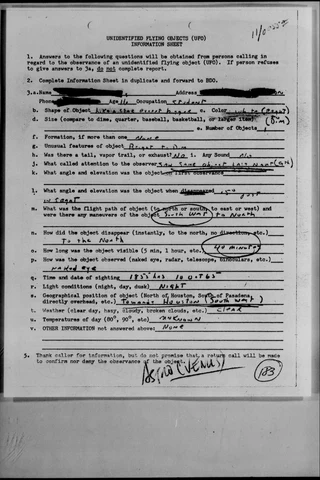 UNIDENTIFIED FLYING OBJECTS (UFO)
INFORMATION SHEET
1. Answers to the following questions will be obtained from persons calling in
regard to the observance of an unidentified flying object (UFO). If person refuses
to give answers to 3a, do not complete report.
2. Complete Information Sheet in duplicate and forward to BDO.
3.a. Name Address
Phone Age 16 Occupation student
b. Shape of Object c. Color white
d. Size (compare to dime, quarter, baseball, basketball, or larger item) (Dim)
e. Number of Objects 1
f. Formation, if more than one None
g. Unusual features of object Bright to Dim
h. Was there a tail, vapor trail, or exhaust? No i. Any Sound No
j. What called attention to the observer Saw Same object last night
k. What angle and elevation was the object on first observance
l. What angle and elevation was the object when disappeared
in sight
m. What was the flight path of object (north or south, to east or west) and
were there any maneuvers of the object South West to North
n. How did the object disappear (instantly, to the north, no direction, etc.)
To the North
o. How long was the object visible (5 min, 1 hour, etc.) 40 minutes
p. How was the object observed (naked eye, radar, telescope, binoculars, etc.)
naked eye
q. Time and date of sighting 1855 hrs 10 Oct 65
r. Light conditions (night, day, dusk) Night
s. Geographical position of object (North of Houston, South of Pasadena,
directly overhead, etc.) Towards Houston (South West)
t. Weather (clear day, hazy, cloudy, broken clouds, etc.) clear
u. Temperatures of day (80°, 90°, etc) unknown
v. OTHER INFORMATION not answered above: None
3. Thank caller for information, but do not promise that a return call will be made
to confirm nor deny the observance of the object.
Astro (VENUS)
123